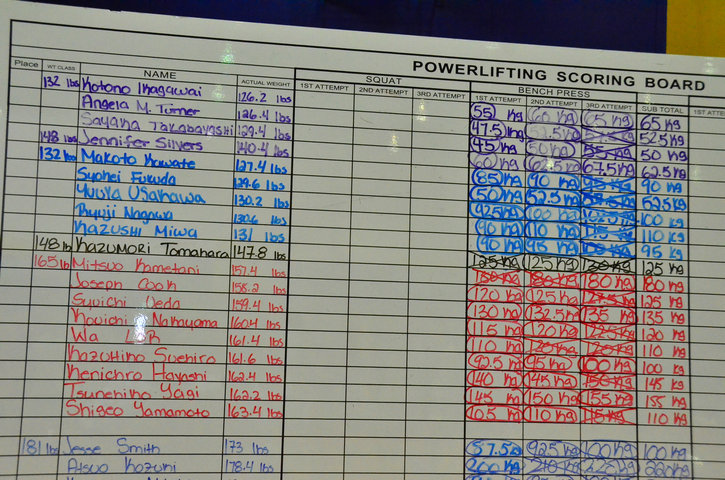 POWERLIFTING SCORING BOARD
Place WT CLASS NAME ACTUAL WEIGHT SQUAT BENCH PRESS
1ST ATTEMPT 2ND ATTEMPT 3RD ATTEMPT 1ST ATTEMPT 2ND ATTEMPT 3RD ATTEMPT SUB TOTAL 1ST ATTE
132 lbs Kotono Ikagawai 126.2 lbs 55 Kg 60 Kg 65 Kg 65 Kg
Angela M. Turner 126.4 lbs 47.5 Kg 52.5 Kg
Sayana Takabayashi 129.4 lbs 45 Kg 50 Kg 55 Kg 50 Kg
148 lbs Jennifer Silvers 140.4 lbs 60 Kg 62.5 Kg 67.5 Kg 62.5 Kg
132 lbs Makoto Kawate 127.4 lbs 85 Kg 90 Kg 95 Kg 90 Kg
Syohei Fukuda 129.6 lbs 50 Kg 52.5 Kg 52.5 Kg
Yuuta Usahawa 130.2 lbs 92.5 Kg 100 Kg 102.5 Kg 100 Kg
Ryuji Nagawa 130.6 lbs 90 Kg 110 Kg 110 Kg
KAZUSHI MIWA 131 lbs 90 Kg 95 Kg 95 Kg
148 lb KAZUMORI Tomahara 147.8 lbs 125 Kg 125 Kg 130 Kg 125 Kg
165 lb Mitsuo Kametani 157.4 lbs 180 Kg 180 Kg 180 Kg 180 Kg
Joseph Cook 158.2 lbs 120 Kg 125 Kg 125 Kg
Syuichi Ueda 159.4 lbs 130 Kg 132.5 Kg 135 Kg 135 Kg
Kouichi Nakayama 160.4 lbs 115 Kg 120 Kg 125 Kg 120 Kg
Wa 161.4 lbs 110 Kg 120 Kg 120 Kg 110 Kg
Kazuhiko Suehiro 161.6 lbs 92.5 Kg 95 Kg 100 Kg 100 Kg
Kenichro Hayashi 162.4 lbs 140 Kg 145 Kg 150 Kg 145 Kg
Tsunehiko Yagi 162.2 lbs 145 Kg 150 Kg 155 Kg 155 Kg
Shigeo Yamamoto 163.4 lbs 105 Kg 110 Kg 115 Kg 110 Kg
181 lbs Jesse Smith 173 lbs 57.5 Kg 92.5 Kg 100 Kg 100 Kg
Atsuo Kozuni 178.4 lbs 200 Kg 210 Kg 220 Kg 220 Kg